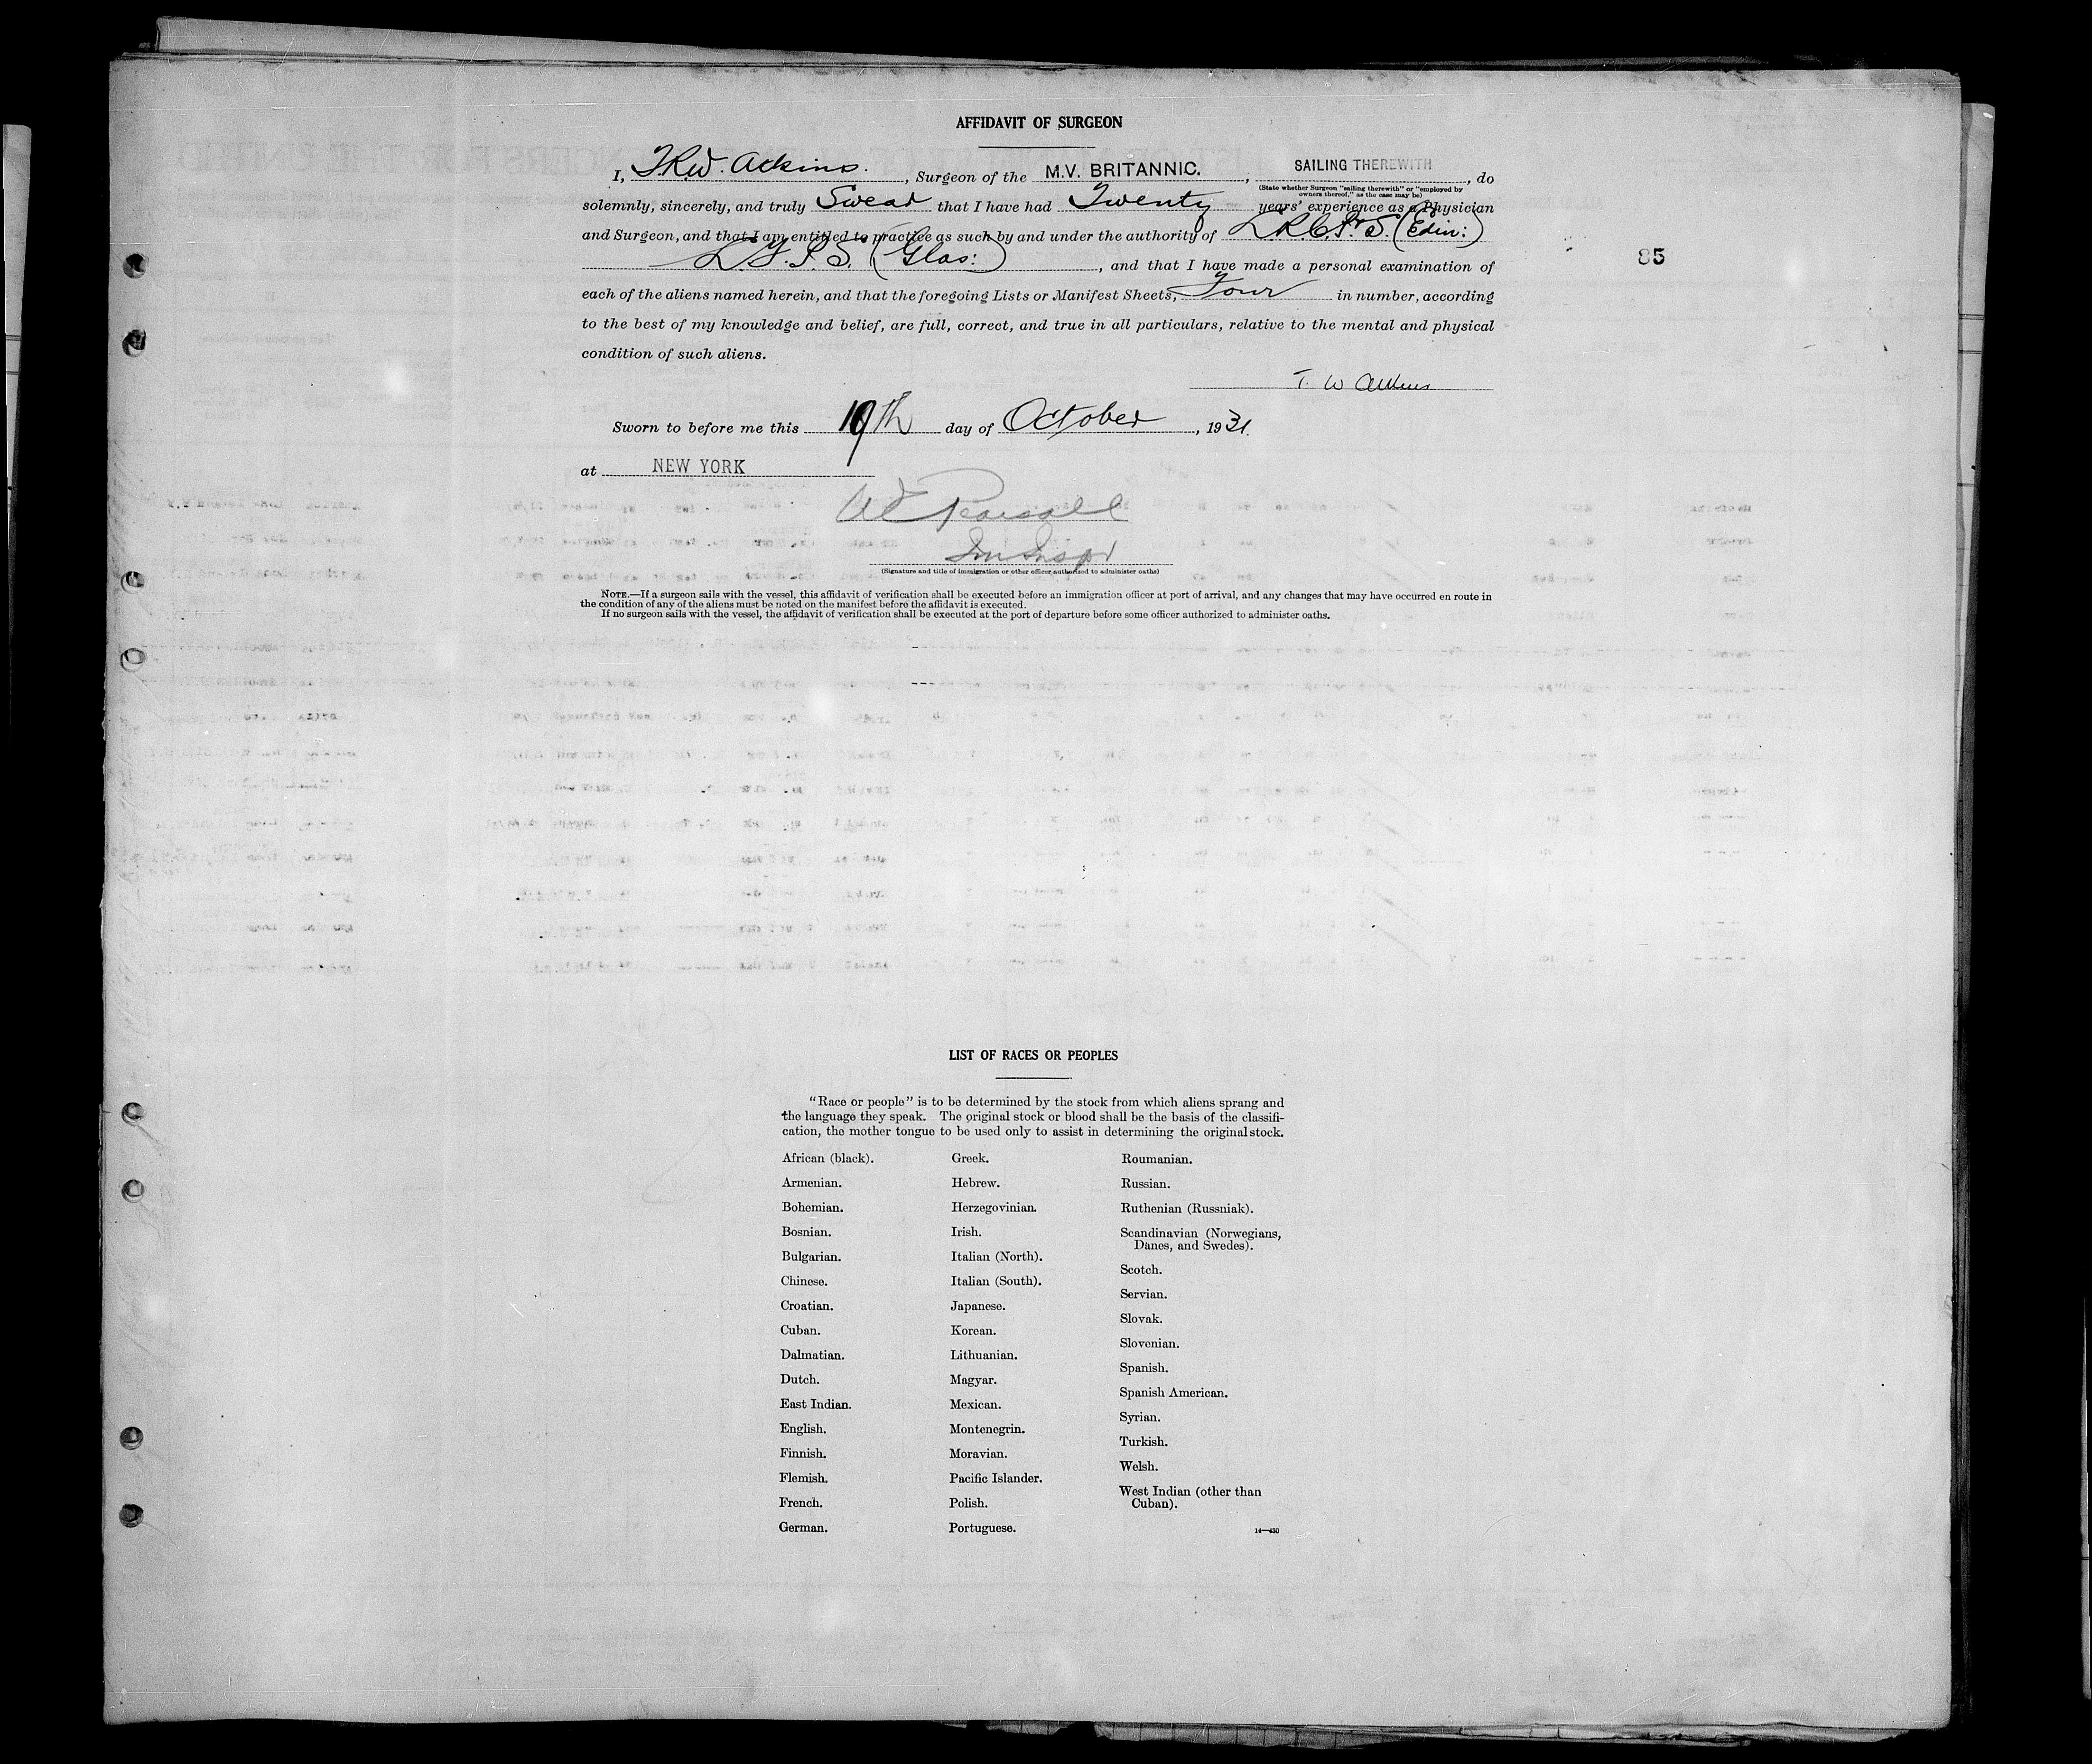 AFFIDAVIT OF SURGEON
I, T.R.W. Atkins. , Surgeon of the M.V. BRITANNIC. , SAILING THEREWITH , do
(State whether Surgeon "sailing therewith" or "employed by
owners thereof," as the case may be)
solemnly, sincerely, and truly Swear that I have had Twenty years' experience as a Physician
and Surgeon, and that I am entitled to practice as such by and under the authority of L.R.C.P. & S. (Edin:)
L.F.P.S. (Glas:) , and that I have made a personal examination of
85
each of the aliens named herein, and that the foregoing Lists or Manifest Sheets, Four in number, according
to the best of my knowledge and belief, are full, correct, and true in all particulars, relative to the mental and physical
condition of such aliens.
T. W Atkins
Sworn to before me this 19th day of October , 1931.
at NEW YORK
Pearsall
Im Inspr
(Signature and title of immigration or other officer authorized to administer oaths)
NOTE.—If a surgeon sails with the vessel, this affidavit of verification shall be executed before an immigration officer at port of arrival, and any changes that may have occurred en route in
the condition of any of the aliens must be noted on the manifest before the affidavit is executed.
If no surgeon sails with the vessel, the affidavit of verification shall be executed at the port of departure before some officer authorized to administer oaths.
LIST OF RACES OR PEOPLES
"Race or people" is to be determined by the stock from which aliens sprang and
the language they speak. The original stock or blood shall be the basis of the classifi-
cation, the mother tongue to be used only to assist in determining the original stock.
African (black).
Armenian.
Bohemian.
Bosnian.
Bulgarian.
Chinese.
Croatian.
Cuban.
Dalmatian.
Dutch.
East Indian.
English.
Finnish.
Flemish.
French.
German.
Greek.
Hebrew.
Herzegovinian.
Irish.
Italian (North).
Italian (South).
Japanese.
Korean.
Lithuanian.
Magyar.
Mexican.
Montenegrin.
Moravian.
Pacific Islander.
Polish.
Portuguese.
Roumanian.
Russian.
Ruthenian (Russniak).
Scandinavian (Norwegians,
Danes, and Swedes).
Scotch.
Servian.
Slovak.
Slovenian.
Spanish.
Spanish American.
Syrian.
Turkish.
Welsh.
West Indian (other than
Cuban).
14—430